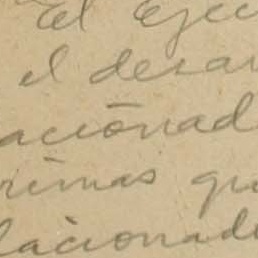 el ejec
el desar
acionad
rimas qu
lacionad